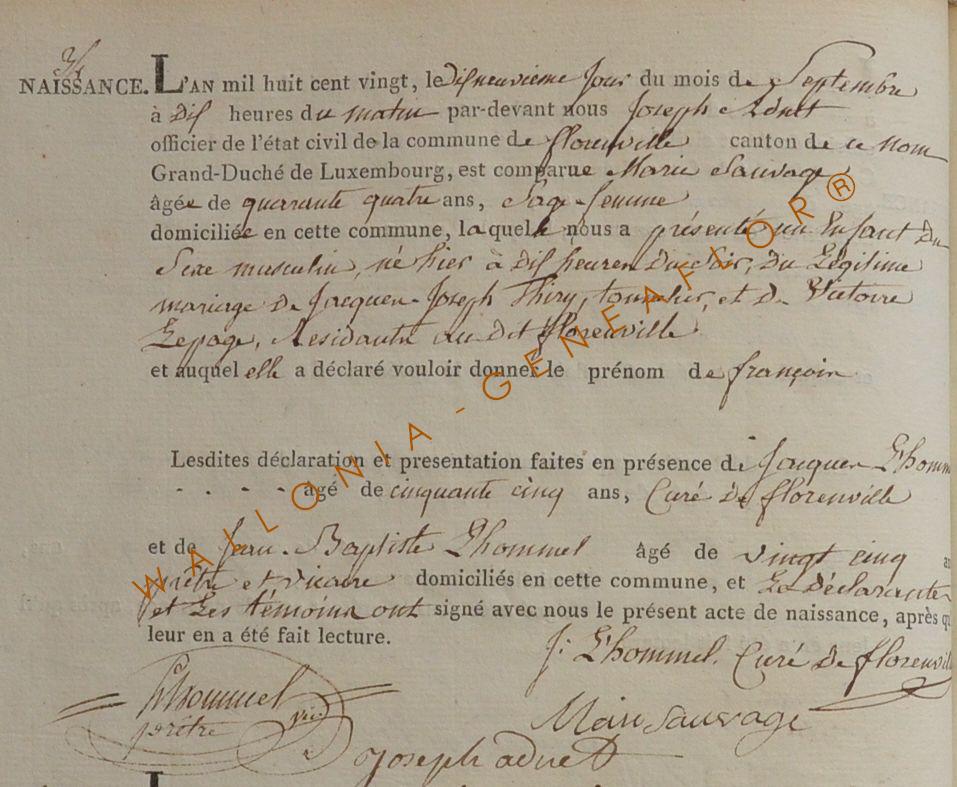 NAISSANCE. L'AN mil huit cent vingt, le dixneuvieme jour du mois de Septembre
à dix heures du matin par-devant nous Joseph Adnet
officier de l'état civil de la commune de florenville canton de ce nom
Grand-Duché de Luxembourg, est comparue Marie Sauvage
âgée de quarante quatre ans, Sage-femme
domiciliée en cette commune, laquelle nous a présenté un Enfant Du
Sexe masculin, né hier à dix heures Du Soir, Du Légitime
mariage De Jacques-Joseph Thiry, tonnelier, et De Victoire
Lepage, Residants au Dit florenville
et auquel elle a déclaré vouloir donner le prénom de françois
Lesdites déclaration et presentation faites en présence de Jacques L'homm
- - - - agé de cinquante cinq ans, Curé De florenville
et de Jean-Baptiste Lhommel âgé de vingt cinq an
prêtre et vicaire domiciliés en cette commune, et La Déclarante
et Les témoins ont signé avec nous le présent acte de naissance, après qu
leur en a été fait lecture.
J: L'hommel. Curé De florenvill
Lhommel
prêtre vic
Mari sauvage
joseph adnet
WALLONIA-GENEAFLOR®